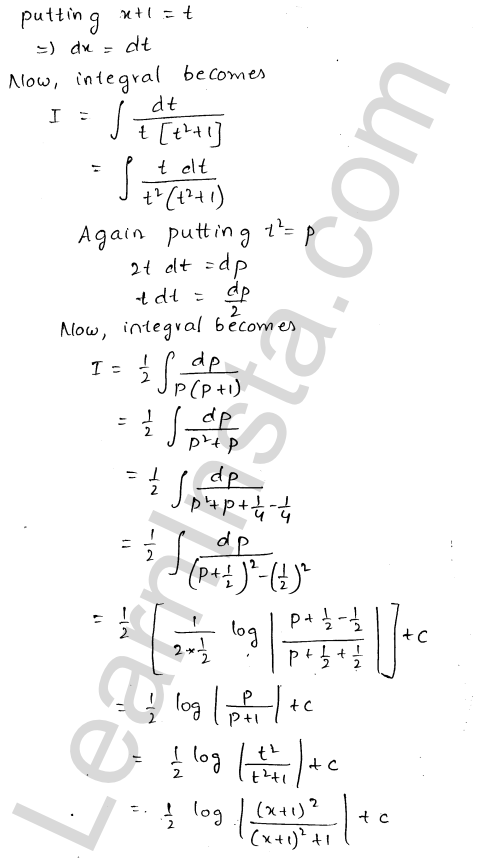 putting x+1 = t
=) dx = dt
Now, integral becomes
I = ∫ dt / t [t²+1]
= ∫ t dt / t²(t²+1)
Again putting t² = p
2t dt = dp
t dt = dp/2
Now, integral becomes
I = 1/2 ∫ dp / p(p+1)
= 1/2 ∫ dp / p²+p
= 1/2 ∫ dp / p²+p+1/4-1/4
= 1/2 ∫ dp / (p+1/2)²-(1/2)²
= 1/2 [ 1/(2×1/2) log | (p+1/2-1/2) / (p+1/2+1/2) | ] + c
= 1/2 log | p / p+1 | + c
= 1/2 log | t² / t²+1 | + c
= 1/2 log | (x+1)² / (x+1)²+1 | + c
LearnInsta.com